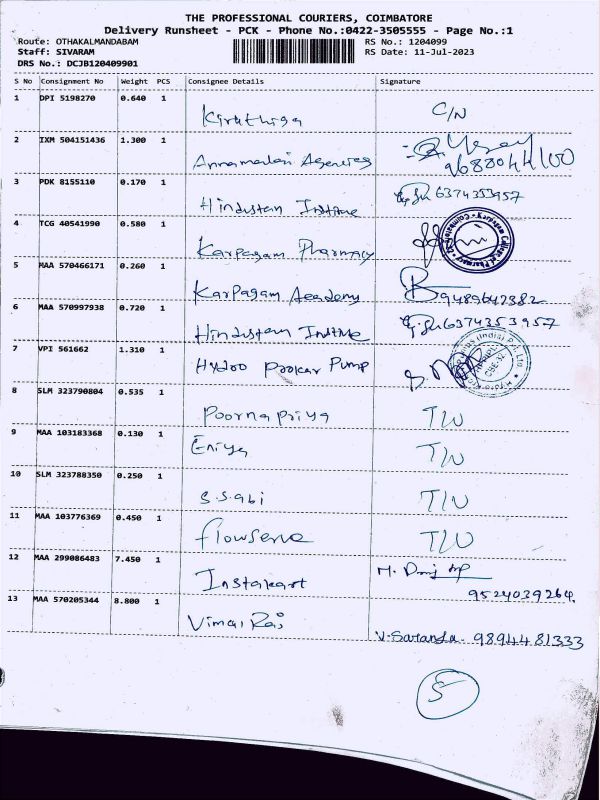 THE PROFESSIONAL COURIERS, COIMBATORE
Delivery Runsheet - PCK - Phone No.:0422-3505555 - Page No.:1
Route: OTHAKALMANDABAM RS No.: 1204099
Staff: SIVARAM RS Date: 11-Jul-2023
DRS No.: DCJB120409901
S No Consignment No Weight PCS Consignee Details Signature
1 DPI 5198270 0.640 1 Kiruthiga C/N
2 IXM 504151436 1.300 1 Annamalai Agencies 9688044100
3 PDK 8155110 0.170 1 Hindustan Institue 6374353957
4 TCG 40541990 0.580 1 Karpagam Pharmacy
5 MAA 570466171 0.260 1 Karpagam Academy 9489647382
6 MAA 570997938 0.720 1 Hindustan Institue 6374353957
7 VPI 561662 1.310 1 Hydro Prokar Pump
8 SLM 323790804 0.535 1 Poornapriya T/N
9 MAA 103183368 0.130 1 Eniya T/N
10 SLM 323788350 0.250 1 S.S.abi T/N
11 MAA 103776369 0.450 1 flowserve T/N
12 MAA 299086483 7.450 1 Instakart 9524039264
13 MAA 570205344 8.800 1 Vimal Raj V. Saranda. 9894481333
5